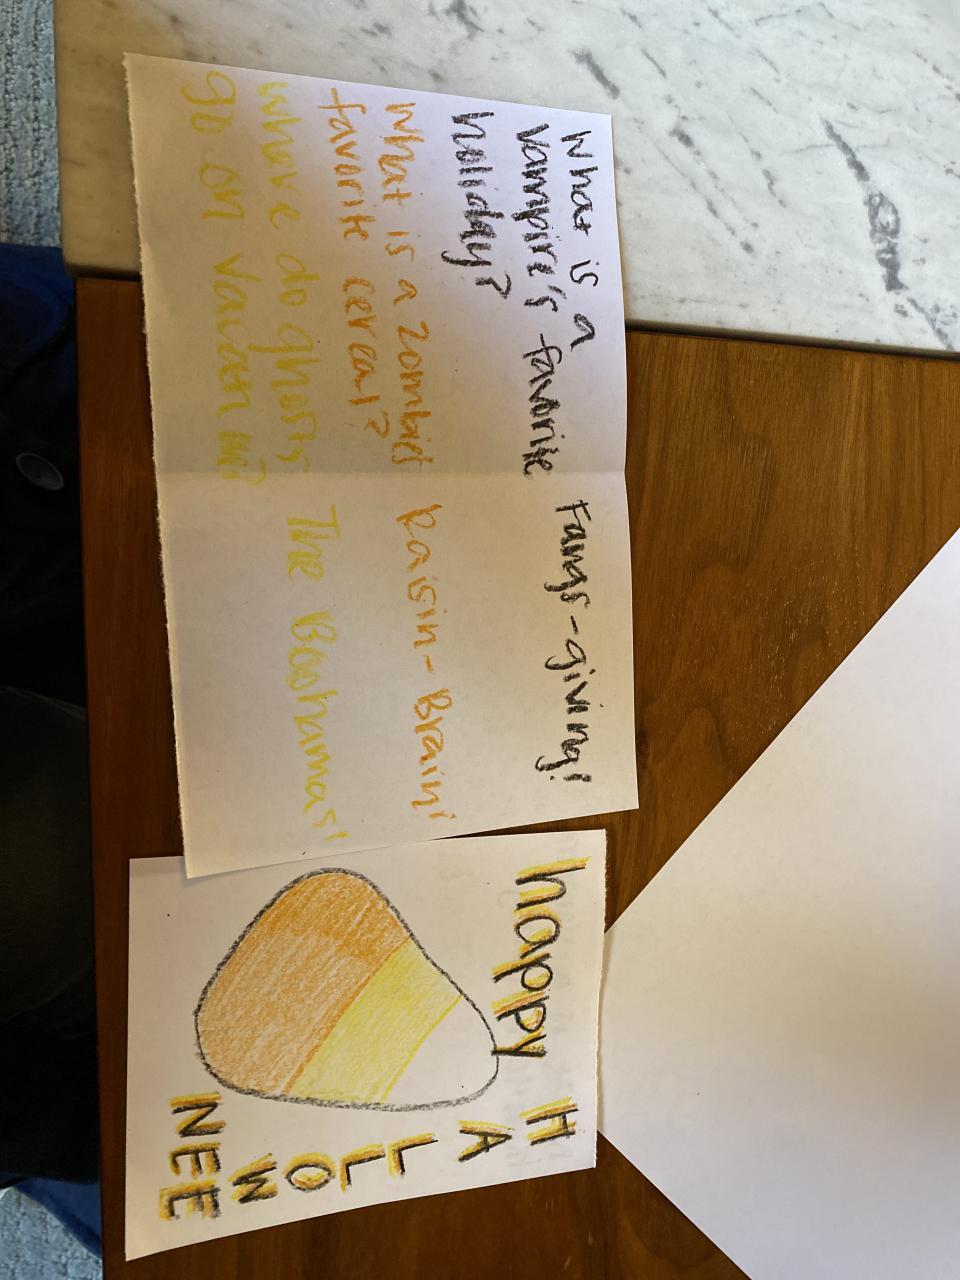 What is a
vampire's favorite
holiday?
Fangs-giving!
What is a zombies
favorite cereal?
Raisin-Brain!
where do ghosts
go on vacation in?
The Boohamas!
happy
H
A
L
L
O
W
NEE